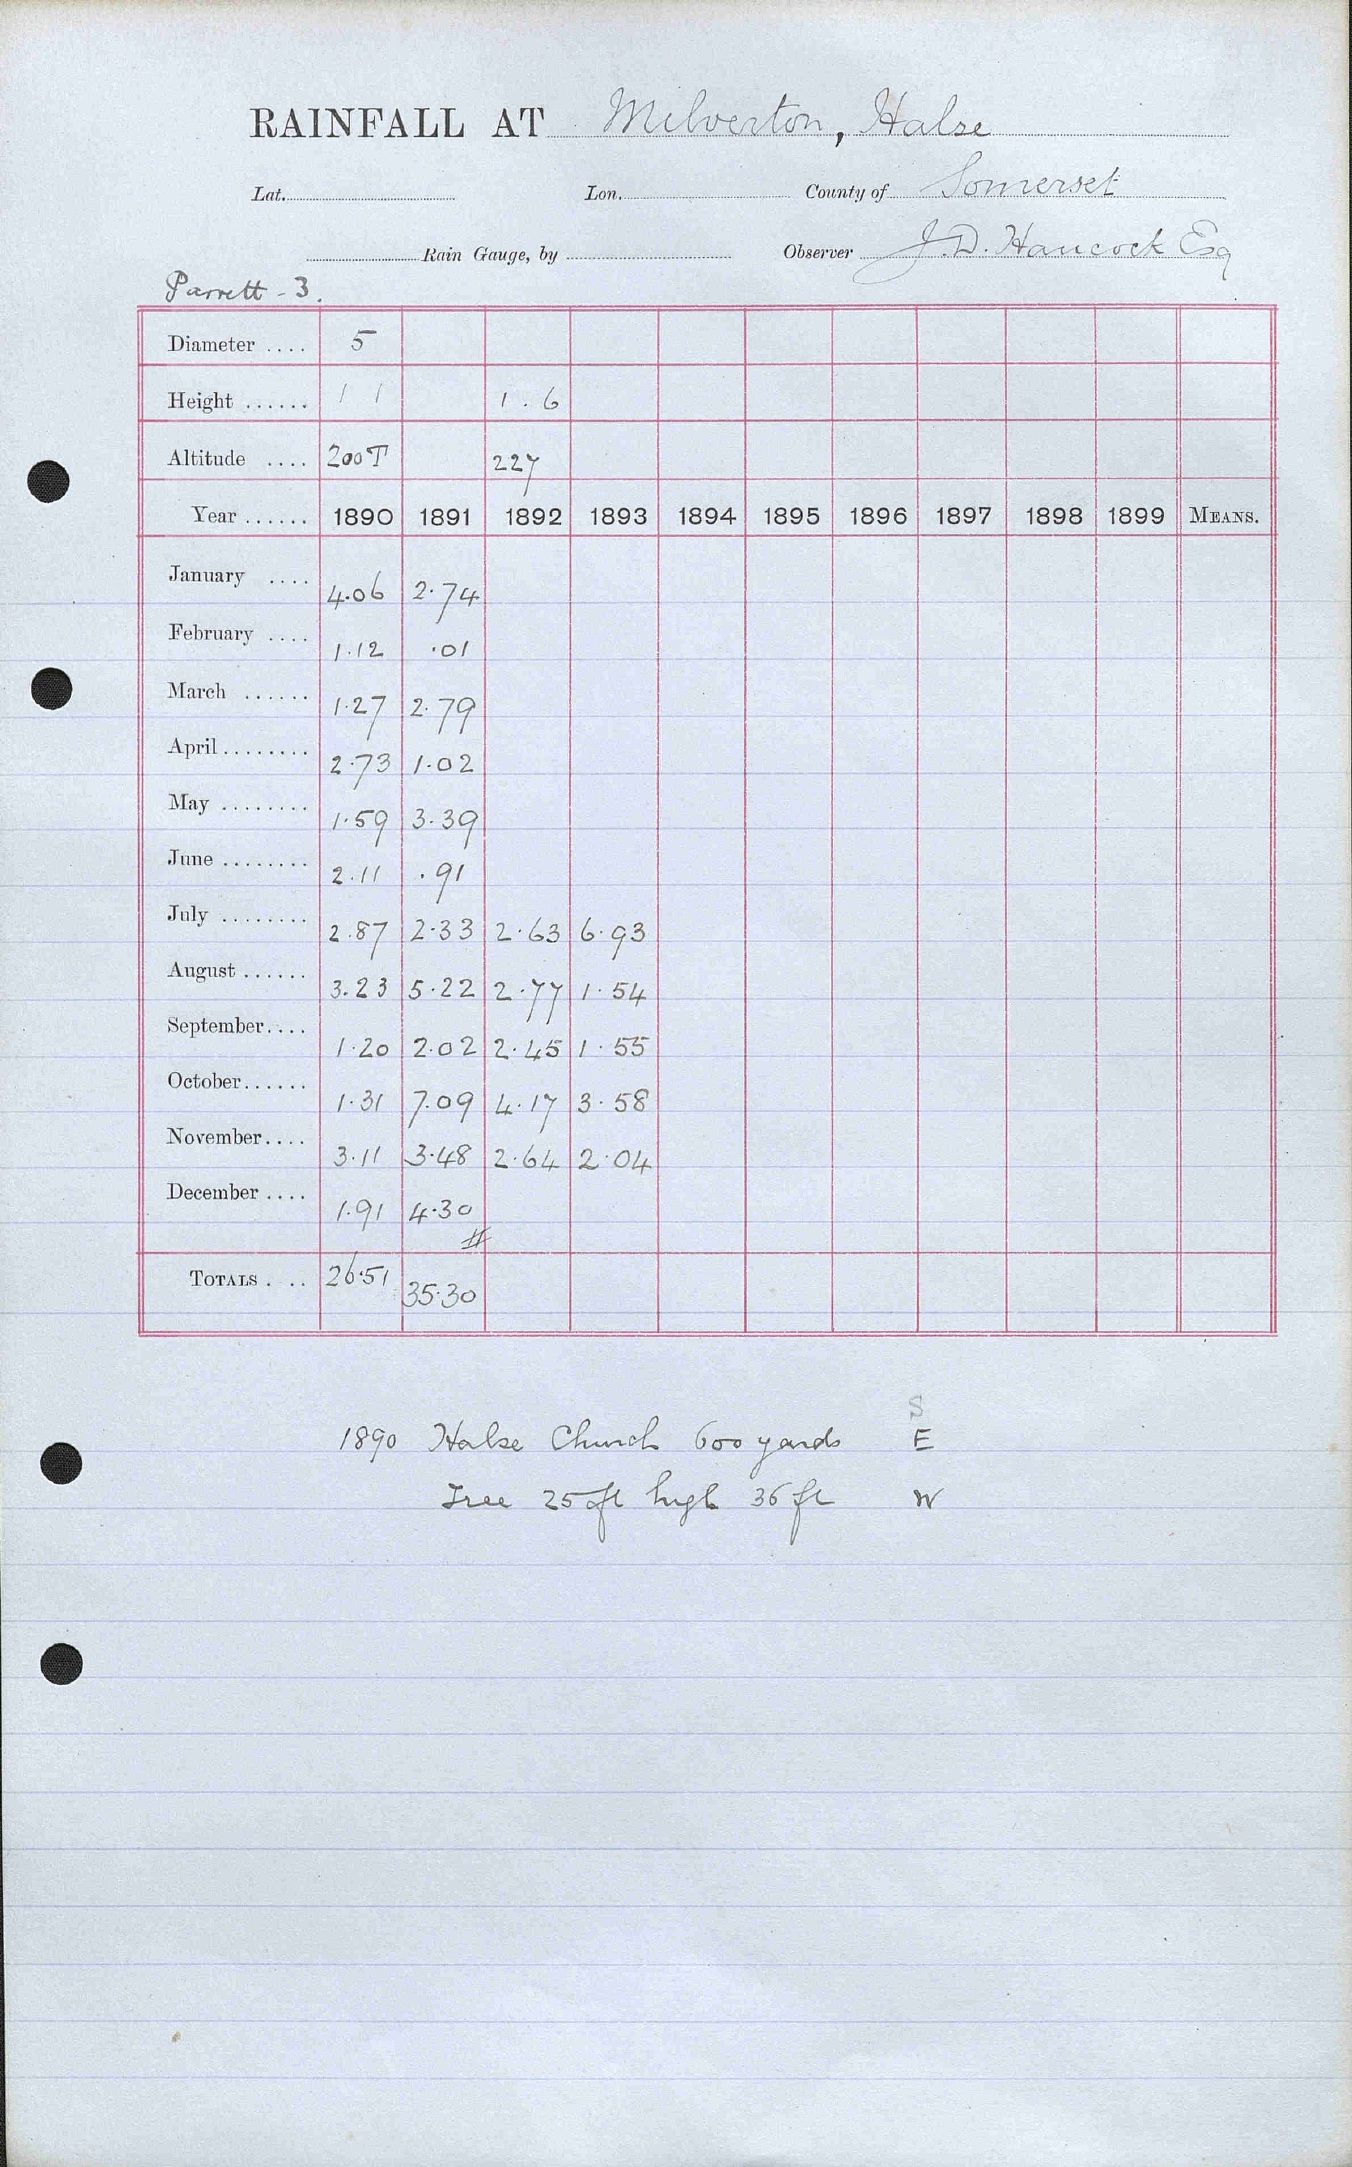 RAINFALL AT Milverton, Halse
Lat. Lon. County of Somerset
Rain Gauge, by Observer J. D. Hancock Esq
Parrett - 3.
Diameter .... 5
Height ...... 1 1 1 . 6
Altitude .... 200 T 227
Year ...... 1890 1891 1892 1893 1894 1895 1896 1897 1898 1899 MEANS.
January .... 4.06 2.74
February .... 1.12 .01
March ...... 1.27 2.79
April ........ 2.73 1.02
May ........ 1.59 3.39
June ........ 2.11 .91
July ........ 2.87 2.33 2.63 6.93
August ...... 3.23 5.22 2.77 1.54
September.... 1.20 2.02 2.45 1.55
October...... 1.31 7.09 4.17 3.58
November.... 3.11 3.48 2.64 2.04
December .... 1.91 4.30
TOTALS . .. 26.51 35.30
S
1890 Halse Church 600 yards E
Tree 25 ft high 36 ft W